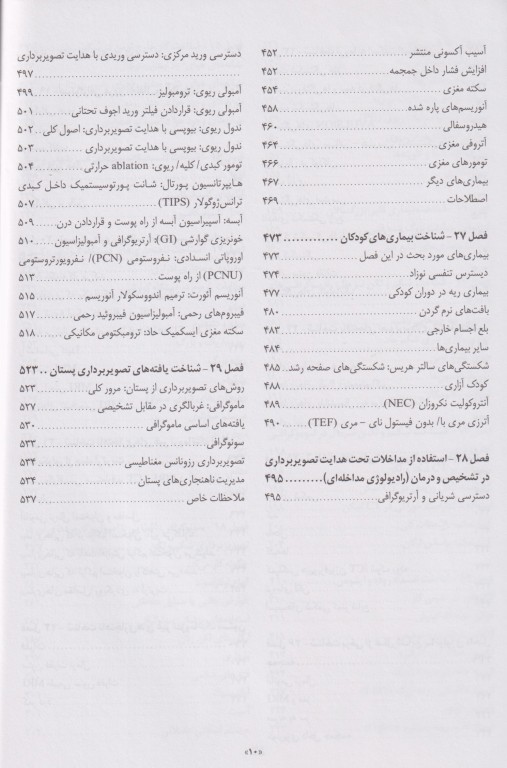 آسیب آکسونی منتشر ........ ۴۵۲
افزایش فشار داخل جمجمه ........ ۴۵۲
سکته مغزی ........ ۴۵۴
آنوریسم‌های پاره شده ........ ۴۵۸
هیدروسفالی ........ ۴۶۰
آتروفی مغزی ........ ۴۶۴
تومورهای مغزی ........ ۴۶۶
بیماری‌های دیگر ........ ۴۶۷
اصطلاحات ........ ۴۶۹
فصل ۲۷ - شناخت بیماری‌های کودکان ........ ۴۷۳
بیماری‌های مورد بحث در این فصل ........ ۴۷۳
دیسترس تنفسی نوزاد ........ ۴۷۳
بیماری ریه در دوران کودکی ........ ۴۷۷
بافت‌های نرم گردن ........ ۴۸۰
بلع اجسام خارجی ........ ۴۸۳
سایر بیماری‌ها ........ ۴۸۴
شکستگی‌های سالتر هریس: شکستگی‌های صفحه رشد.. ۴۸۵
کودک آزاری ........ ۴۸۸
آنتروکولیت نکروزان (NEC) ........ ۴۸۹
آترزی مری با/ بدون فیستول نای - مری (TEF) ........ ۴۹۰
فصل ۲۸ - استفاده از مداخلات تحت هدایت تصویربرداری
در تشخیص و درمان (رادیولوژی مداخله‌ای) ........ ۴۹۵
دسترسی شریانی و آرتریوگرافی ........ ۴۹۵
دسترسی ورید مرکزی: دسترسی وریدی با هدایت تصویربرداری
........ ۴۹۷
آمبولی ریوی: ترومبولیز ........ ۴۹۹
آمبولی ریوی: قراردادن فیلتر ورید اجوف تحتانی ........ ۵۰۱
ندول ریوی: بیوپسی با هدایت تصویربرداری: اصول کلی .. ۵۰۲
ندول ریوی: بیوپسی با هدایت تصویربرداری ........ ۵۰۳
تومور کبدی/ کلیه/ ریوی: ablation حرارتی ........ ۵۰۴
هایپرتانسیون پورتال: شانت پورتوسیستمیک داخل کبدی
ترانس‌ژوگولار (TIPS) ........ ۵۰۷
آبسه: آسپیراسیون آبسه از راه پوست و قراردادن درن ........ ۵۰۹
خونریزی گوارشی (GI): آرتریوگرافی و آمبولیزاسیون ........ ۵۱۰
اوروپاتی انسدادی: نفروستومی (PCN)/ نفرویورتروستومی
(PCNU) از راه پوست ........ ۵۱۳
آنوریسم آئورت: ترمیم اندووسکولار آنوریسم ........ ۵۱۵
فیبروم‌های رحمی: آمبولیزاسیون فیبروئید رحمی ........ ۵۱۷
سکته مغزی ایسکمیک حاد: ترومبکتومی مکانیکی ........ ۵۱۸
فصل ۲۹ - شناخت یافته‌های تصویربرداری پستان .. ۵۲۳
روش‌های تصویربرداری از پستان: مرور کلی ........ ۵۲۳
ماموگرافی: غربالگری در مقابل تشخیصی ........ ۵۲۷
یافته‌های اساسی ماموگرافی ........ ۵۳۰
سونوگرافی ........ ۵۳۳
تصویربرداری رزونانس مغناطیسی ........ ۵۳۴
مدیریت ناهنجاری‌های پستان ........ ۵۳۴
ملاحظات خاص ........ ۵۳۷
«۱۰»